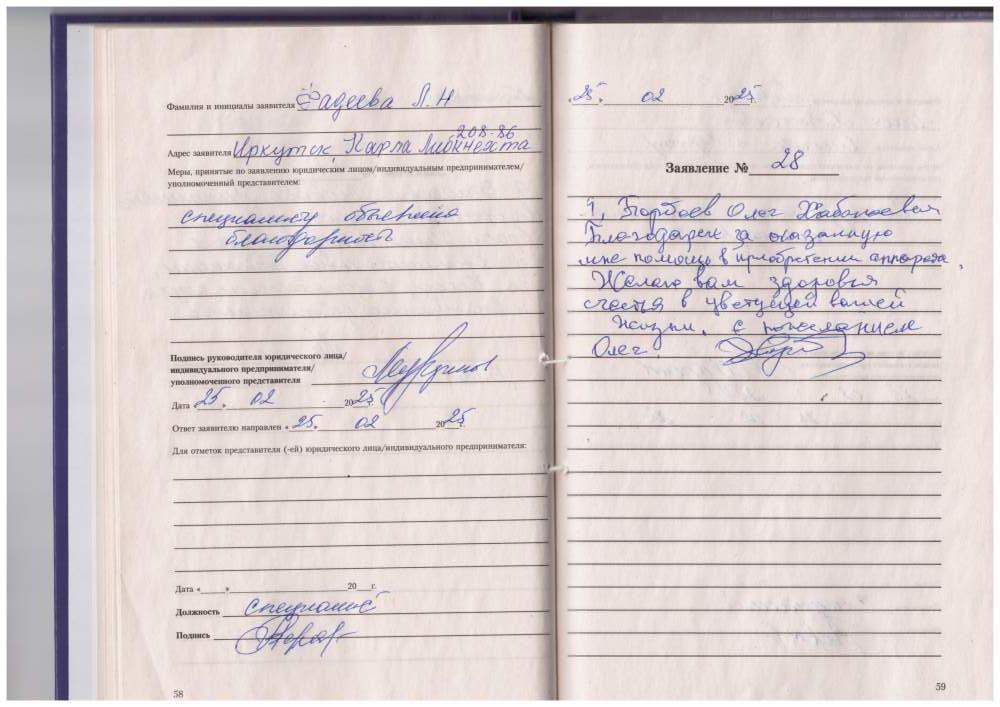 Фамилия и инициалы заявителя Фадеева Л. Н
208-86
Адрес заявителя Иркутск, Карла Либкнехта
Меры, принятые по заявлению юридическим лицом/индивидуальным предпринимателем/
уполномоченный представителем:
специалисту объявлена
благодарность
Подпись руководителя юридического лица/
индивидуального предпринимателя/
уполномоченного представителя
Дата «25» 02 2025г.
Ответ заявителю направлен «25» 02 2025г.
Для отметок представителя (-ей) юридического лица/индивидуального предпринимателя:
Дата «_____» 20___г.
Должность специалист
Подпись
58
«25» 02 2025г.
Заявление № 28
Я, Олег
Благодарен за оказанную
мне помощь в приобретении аппарата.
Желаю вам здоровья
счастья в цветущей вашей
жизни. с пожеланием
Олег.
59